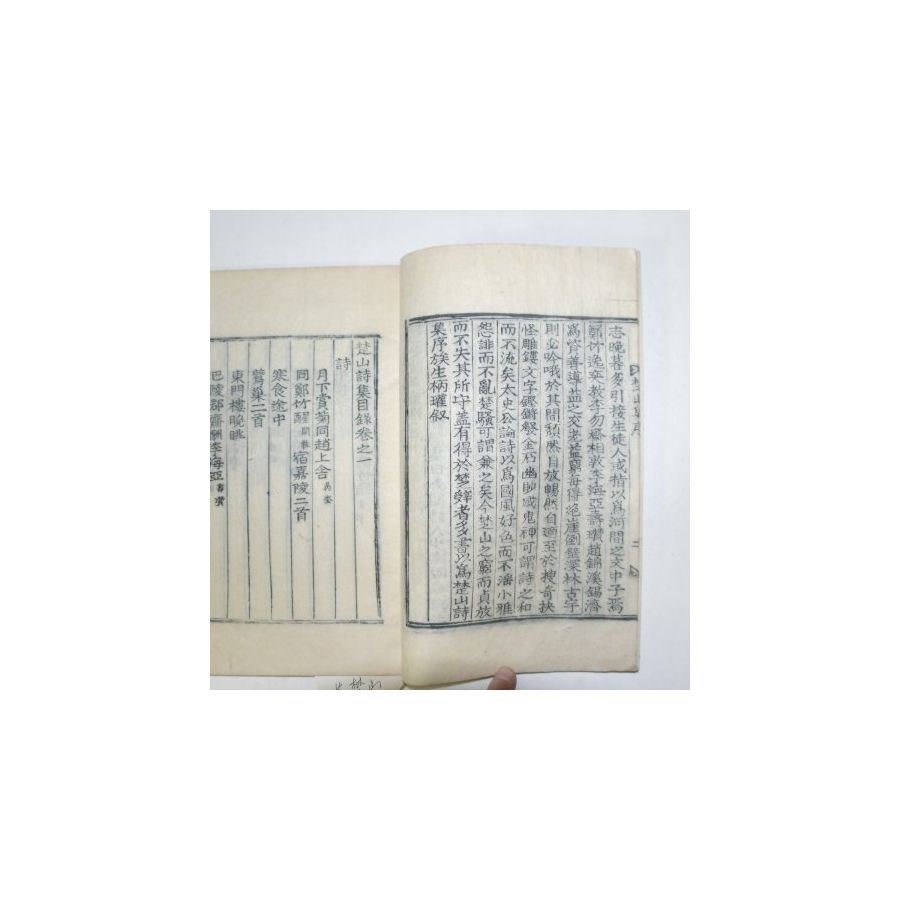 志晩喜多引接生徒人或指以爲河間之文中子焉
鄭竹逸奕教李勿齋相敦李海亞壽瓚趙錦溪錫濟
爲資善導益之交老益窮每得絶崖倒壁深林古宇
則必吟哦於其間頹然自放暢然自適至於搜奇抉
怪雕鏤文字鏗鏘發金石幽眇感鬼神可謂詩之和
而不流矣太史公論詩以爲國風好色而不滛小雅
怨誹而不亂楚騷可謂兼之矣今楚山之窮而貞放
而不失其所守盖有得於楚辭者多書以爲楚山詩
集序族生柄瓘叙
楚山詩集目錄卷之一
詩
月下賞菊同趙上舍
同鄭竹醒宿嘉陵二首
寒食途中
鶯巢二首
東門樓晩眺
巴陵郡齋酬李海亞壽瓚